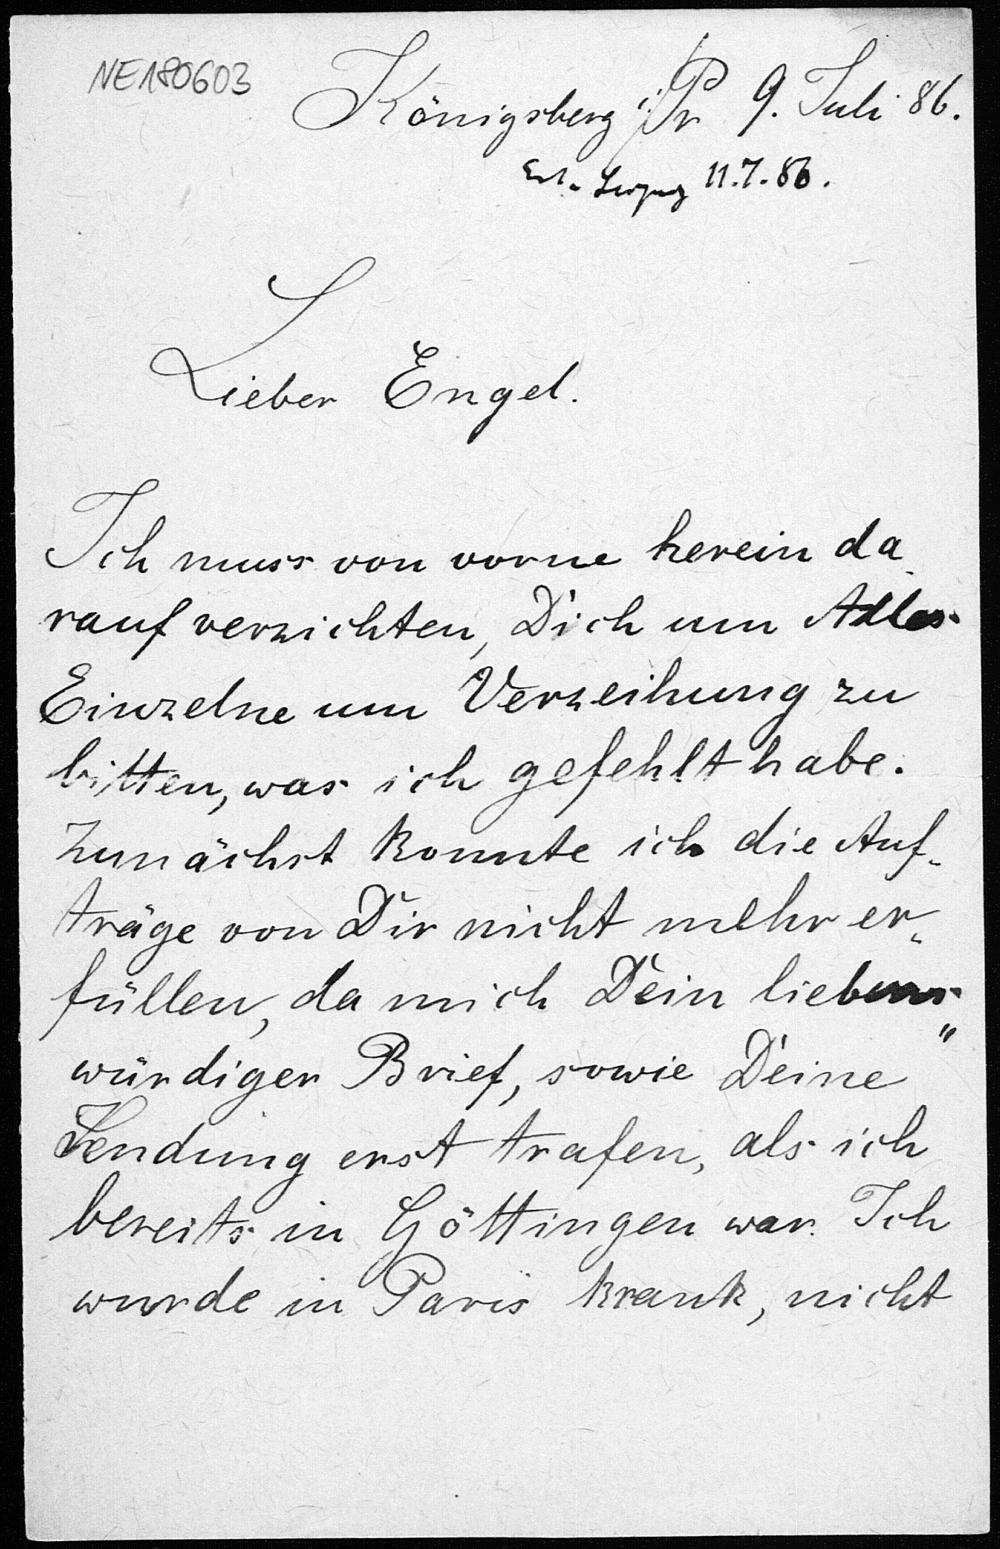 NE180603
Königsberg i/Pr 9. Juli 86.
Erh. Leipzig 11.7.86.
Lieber Engel.
Ich muss von vorne herein da-
rauf verzichten, Dich um Alles
Einzelne um Verzeihung zu
bitten, was ich gefehlt habe.
Zunächst konnte ich die Auf-
träge von Dir nicht mehr er-
füllen, da mich Dein liebens-
würdiger Brief, sowie Deine
Sendung erst trafen, als ich
bereits in Göttingen war. Ich
wurde in Paris krank, nicht